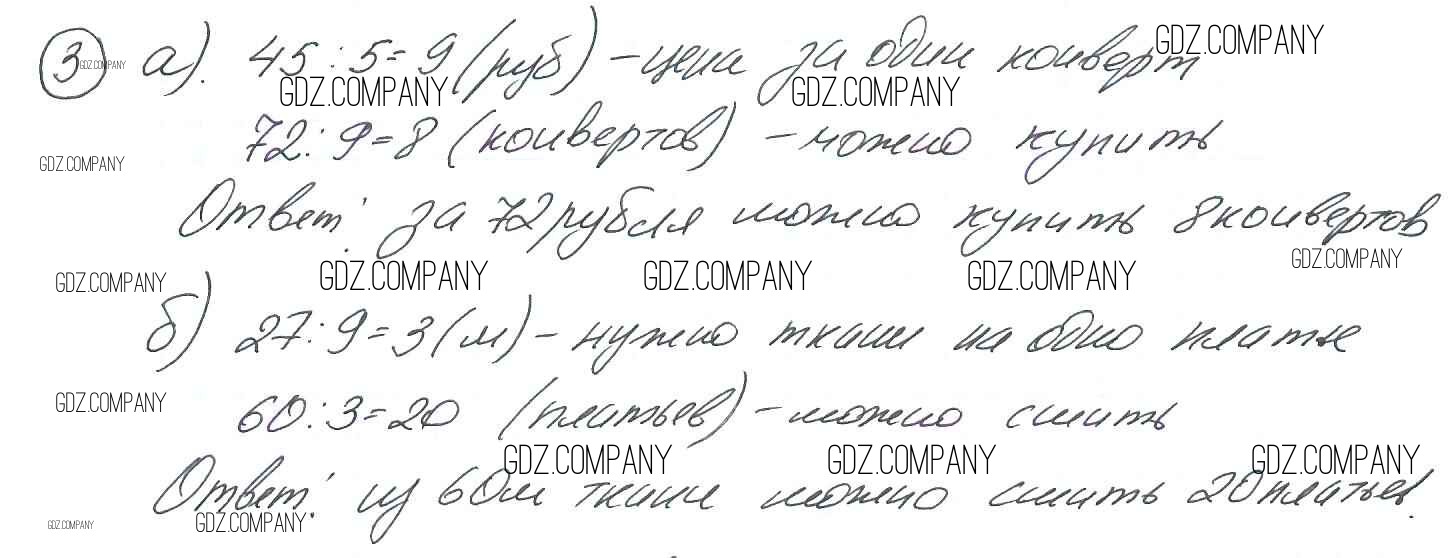 3 GDZ.COMPANY а). 45 : 5 = 9 (руб) – цена за один конверт GDZ.COMPANY
GDZ.COMPANY GDZ.COMPANY
GDZ.COMPANY 72 : 9 = 8 (конвертов) – можно купить
Ответ: за 72 рубля можно купить 8 конвертов
GDZ.COMPANY GDZ.COMPANY GDZ.COMPANY GDZ.COMPANY GDZ.COMPANY
б) 27 : 9 = 3 (м) – нужно ткани на одно платье
GDZ.COMPANY 60 : 3 = 20 (платьев) – можно сшить
GDZ.COMPANY GDZ.COMPANY GDZ.COMPANY
Ответ: из 60 м ткани можно сшить 20 платьев.
GDZ.COMPANY GDZ.COMPANY